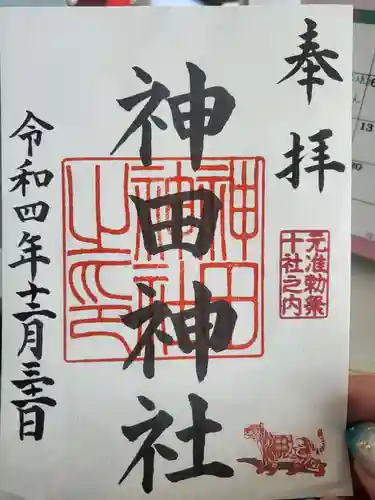 奉拝
元准勅祭
十社之内
神田神社
神田
神社
之印
令和四年十二月三十一日